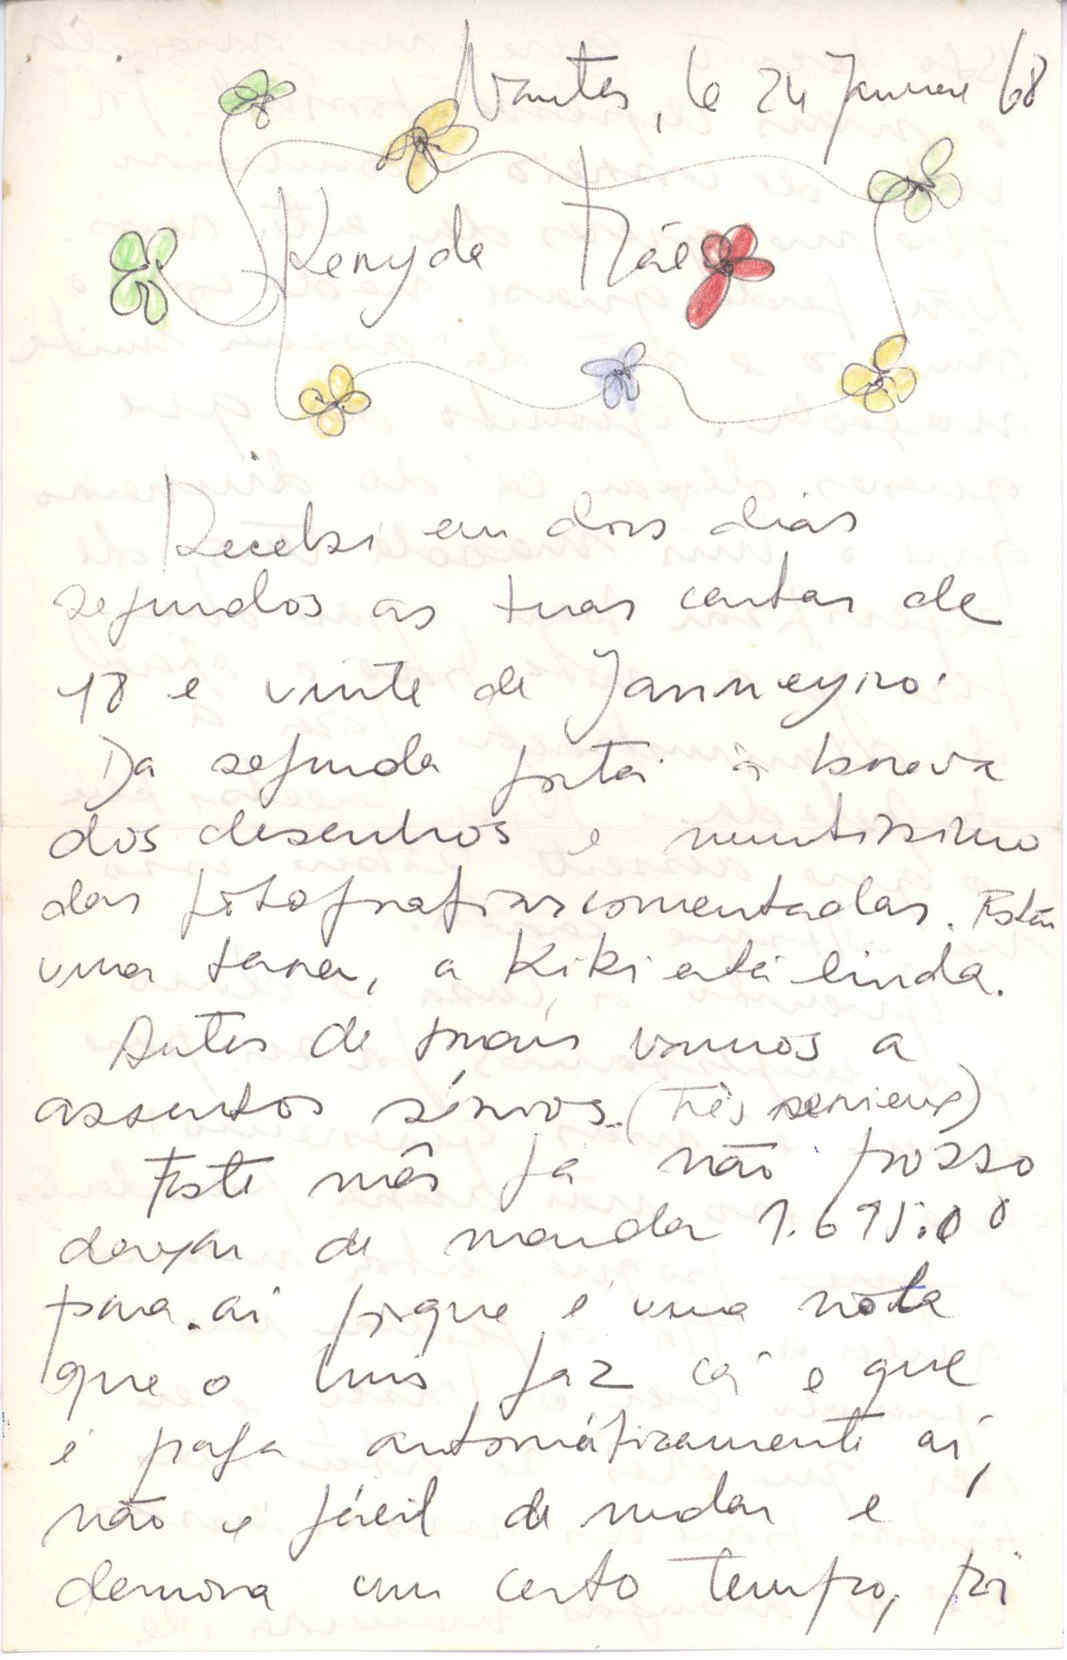 Nantes, le 24 Janvier 68
Keryda Mãe
Recebi em dois dias
seguidos as tuas cartas de
18 e vinte de Janneyro.
Da segunda gostei à brava
dos desenhos e muntissimo
das fotografias comentadas. Estás
uma tara, a Kiki está linda.
Antes de mais vamos a
assuntos sérios.. (Três serieux)
Este mês já não posso
deixar de mandar 1.695.00
para aí porque é uma nota
que o Luis faz cá e que
é paga automáticamente aí,
não é fácil de mudar e
demora um certo tempo, foi